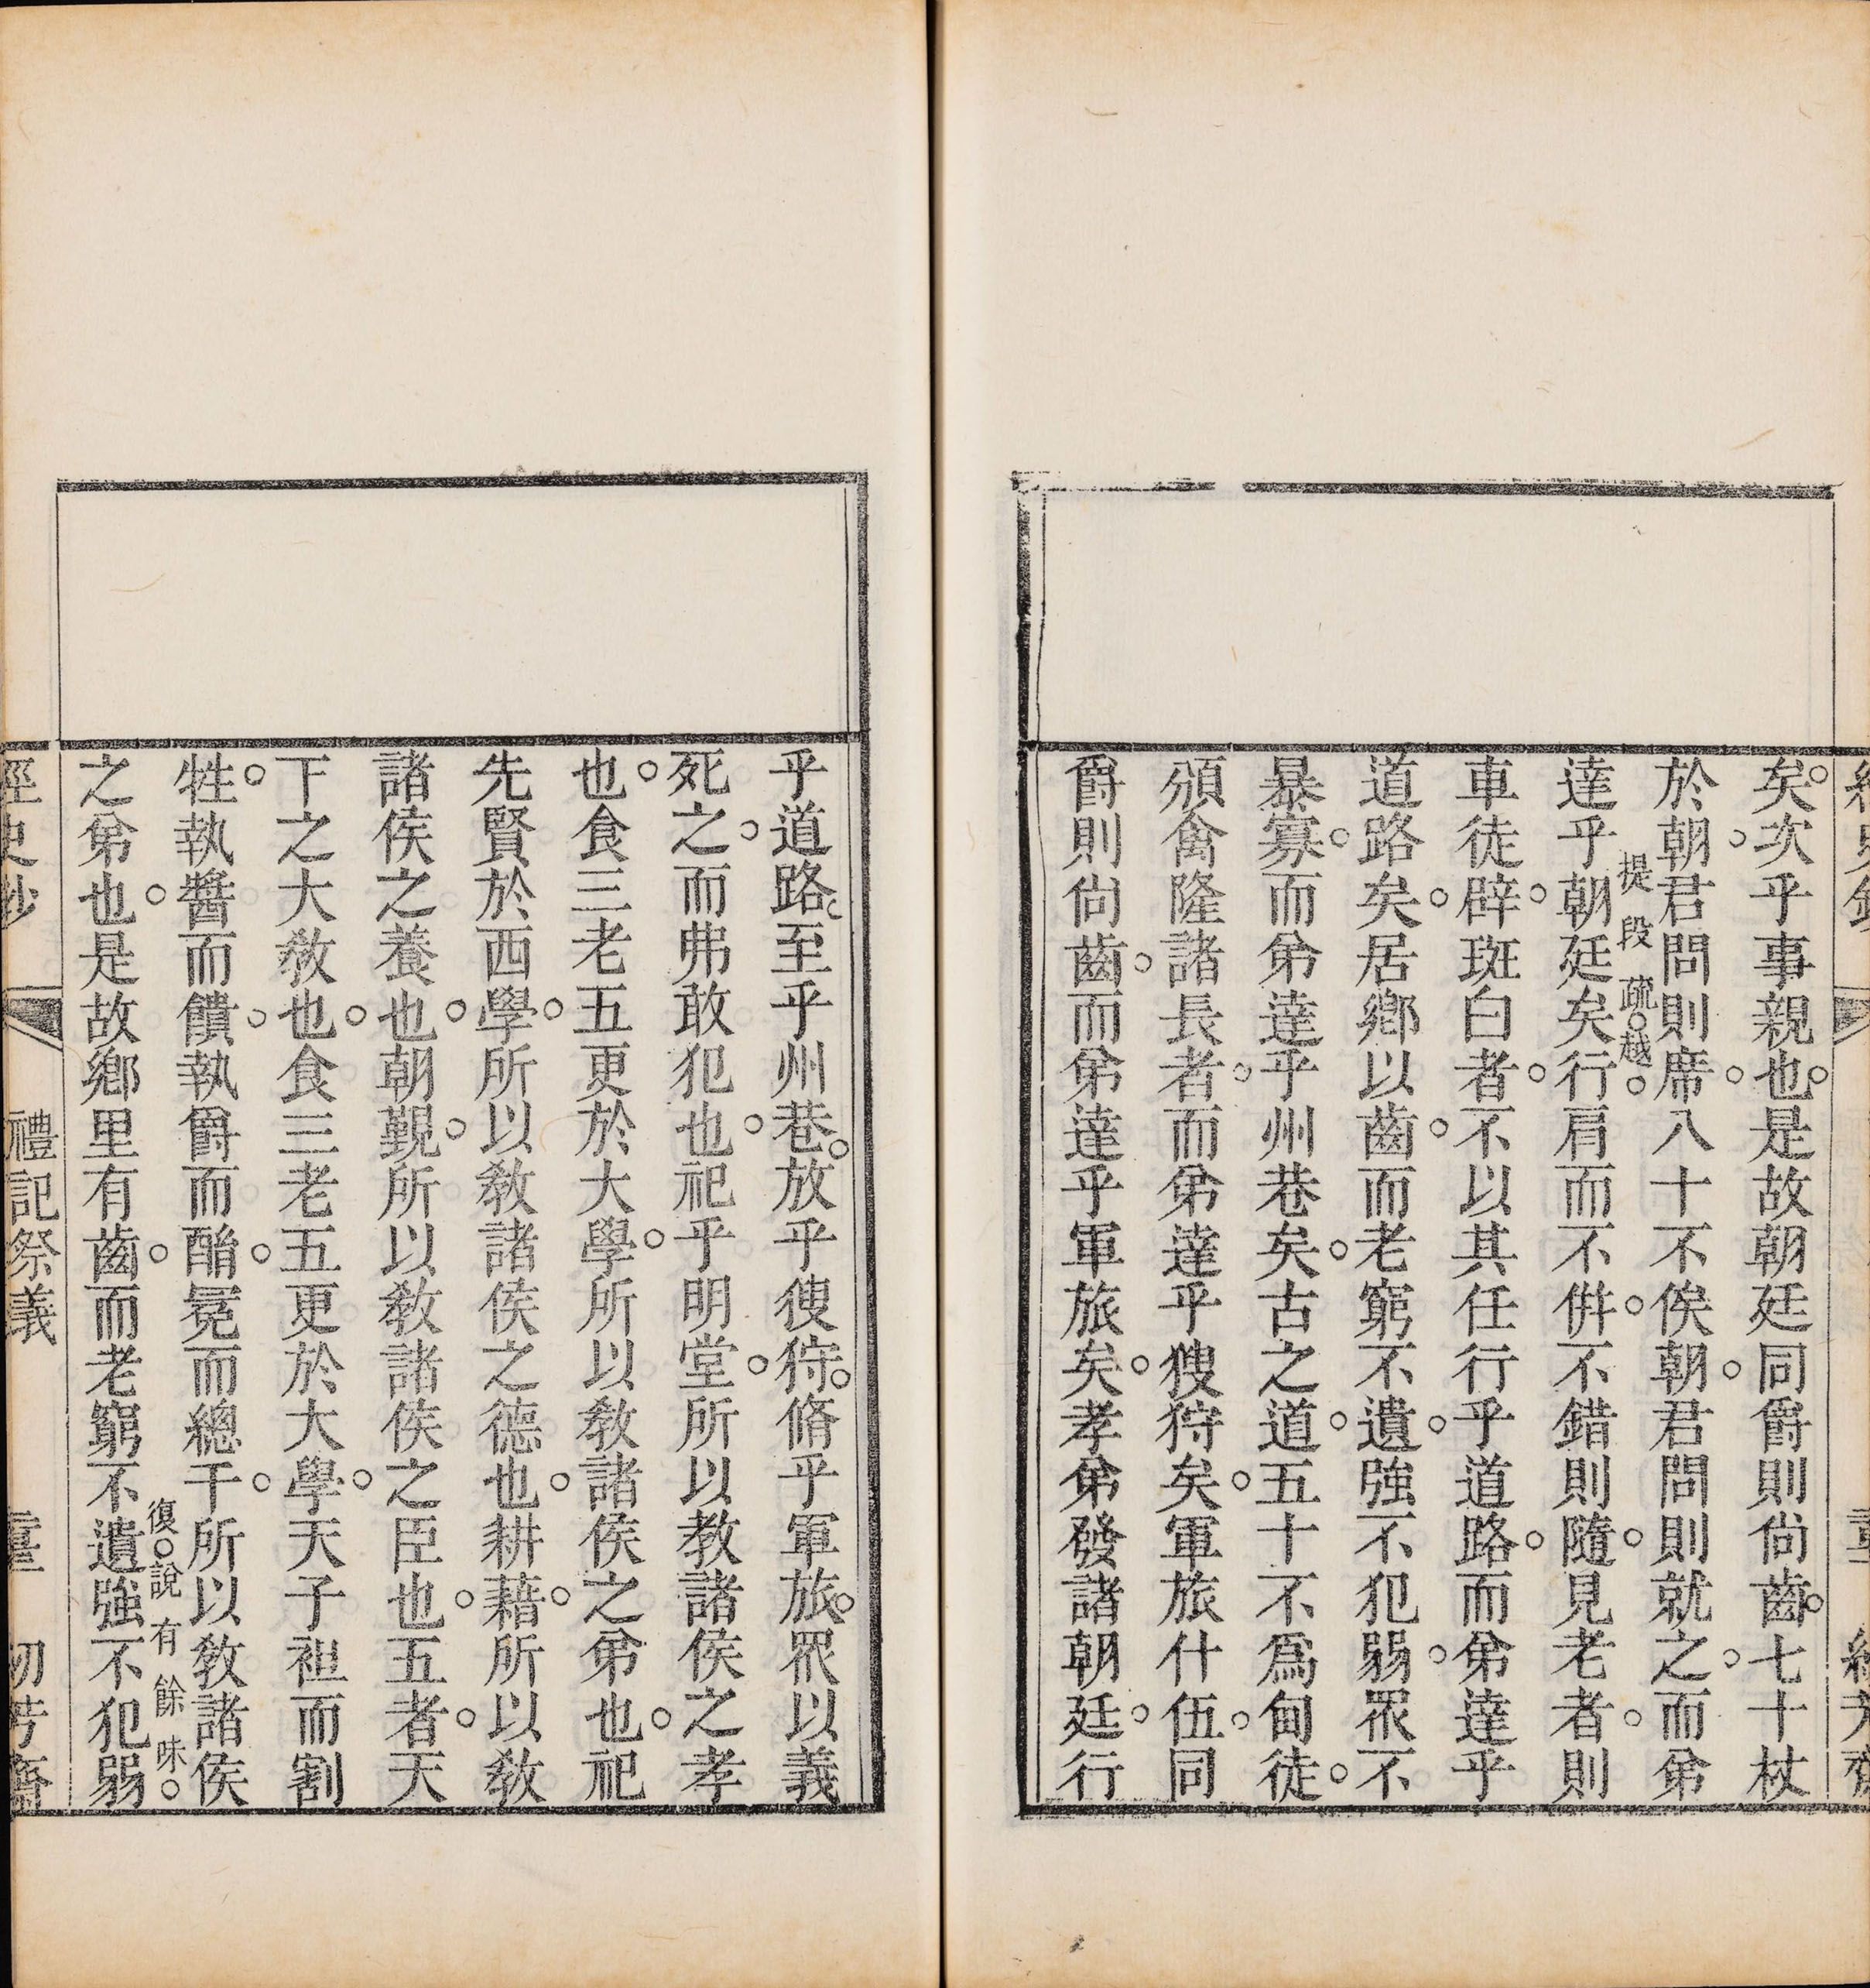 矣次乎事親也是故朝廷同爵則尙齒七十杖
於朝君問則席八十不俟朝君問則就之而弟
提段疏越
達乎朝廷矣行肩而不倂不錯則隨見老者則
車徒辟斑白者不以其任行乎道路而弟達乎
道路矣居鄉以齒而老窮不遺強不犯弱眾不
暴寡而弟達乎州巷矣古之道五十不爲甸徒
頒禽隆諸長者而弟達乎獀狩矣軍旅什伍同
爵則尙齒而弟達乎軍旅矣孝弟發諸朝廷行
乎道路至乎州巷放乎獀狩脩乎軍旅眾以義
死之而弗敢犯也祀乎明堂所以教諸侯之孝
也食三老五更於大學所以教諸侯之弟也祀
先賢於西學所以教諸侯之德也耕藉所以教
諸侯之養也朝覲所以教諸侯之臣也五者天
下之大教也食三老五更於大學天子袒而割
牲執醬而饋執爵而酳冕而總干所以教諸侯
復說有餘味
之弟也是故鄉里有齒而老窮不遺強不犯弱
經史鈔 禮記祭義